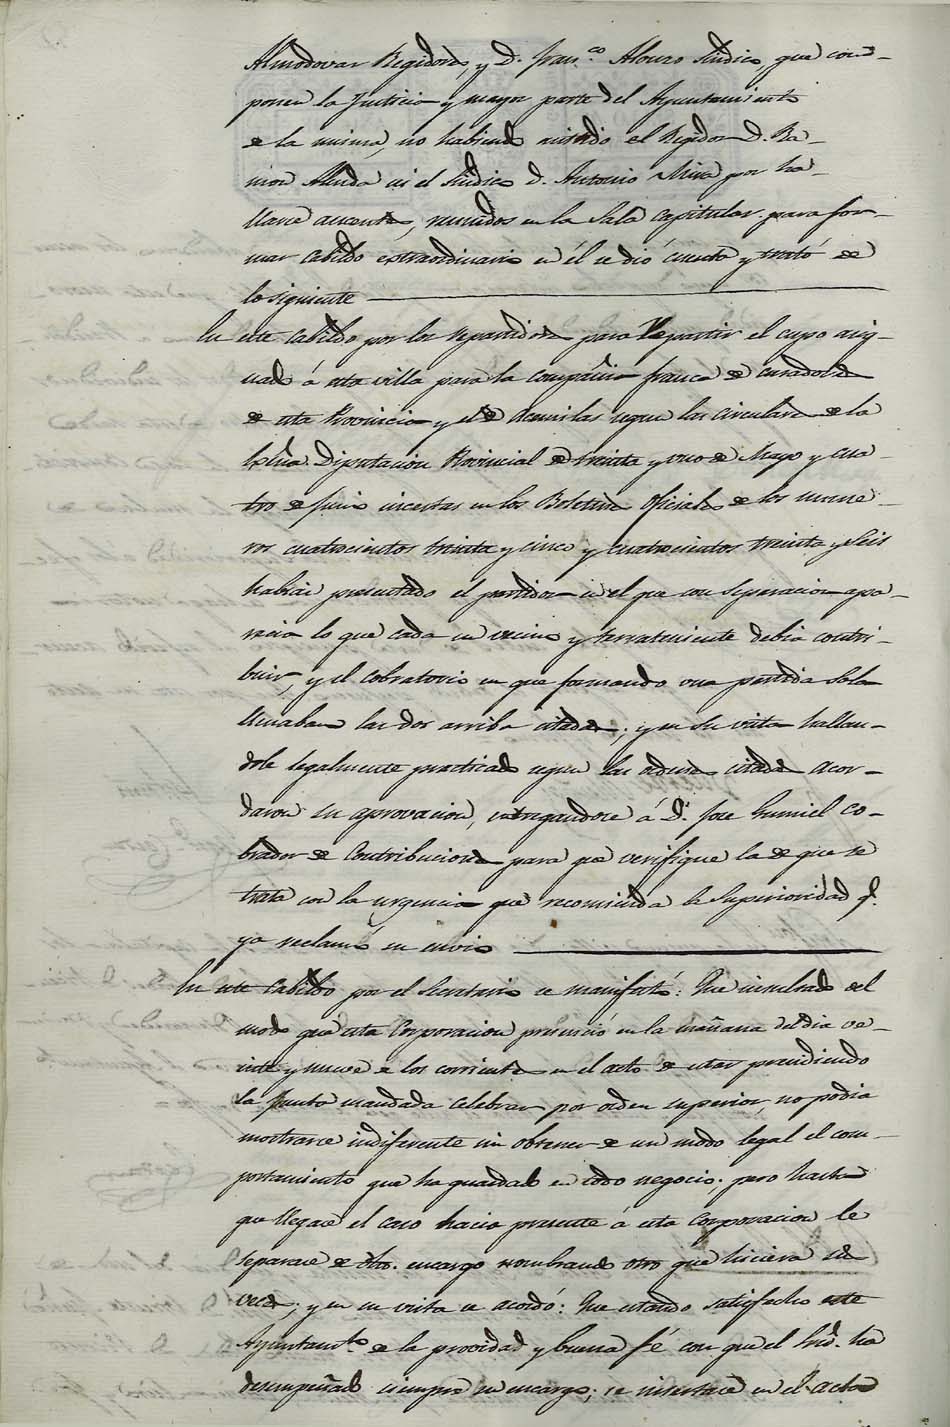 Almodovar Regidores, y D. Fran.co Alonso Sindico, que com-
ponen la Justicia y mayor parte del Ayuntamiento
de la misma, no habiendo asistido el Regidor D. Ra-
mon Alenda ni el Sindico D. Antonio Mira por ha-
llarse ausentes, reunidos en la Sala Capitular para for-
mar Cabildo extraordinario en él se dió cuenta y trató de
lo siguiente
En este Cabildo por los repartidores para Repartir el cupo asig-
nado á esta villa para la compañia franca de
de esta Provincia y el de Acemilas segun las circulares de la
Exma. Diputacion Provincial de treinta y uno de Mayo y cua-
tro de Junio insertas en los Boletines Oficiales de los nume-
ros cuatrocientos treinta y cinco y cuatrocientos treinta y seis
habian presentado el partidor en el que con separacion apa-
recia lo que cada un vecino y terrateniente debia contri-
buir, y el Cobratorio en que formando una partida sola
llevaban las dos arriba citadas; y en su vista hallan-
dole legalmente practicado segun las ordenes citadas acor-
daron su aprovacion, entregandose á D. Jose Gumiel Co-
brador de Contribuciones para que verifique la de que se
trata con la urgencia que recomienda la Superioridad q.
ya reclamó su envio
En este Cabildo por el Secretario se manifestó: Que insultado del
modo que esta Corporacion presenció en la mañana del dia ve-
inte y nueve de los corrientes en el acto de estar presidiendo
la Junta mandada celebrar por orden superior, no podia
mostrarse indiferente sin obtener de un modo legal el com-
portamiento que ha guardado en todo negocio; pero hasta
que llegase el caso hacia presente á esta Corporacion le
separase de dho. encargo nombrando otro que hiciera sus
veces; y en su vista se acordó: Que estando satisfecho este
Ayuntam.to de la providad y buena fé con que el Srio. ha
desempeñado siempre su encargo; se insertase en el acta